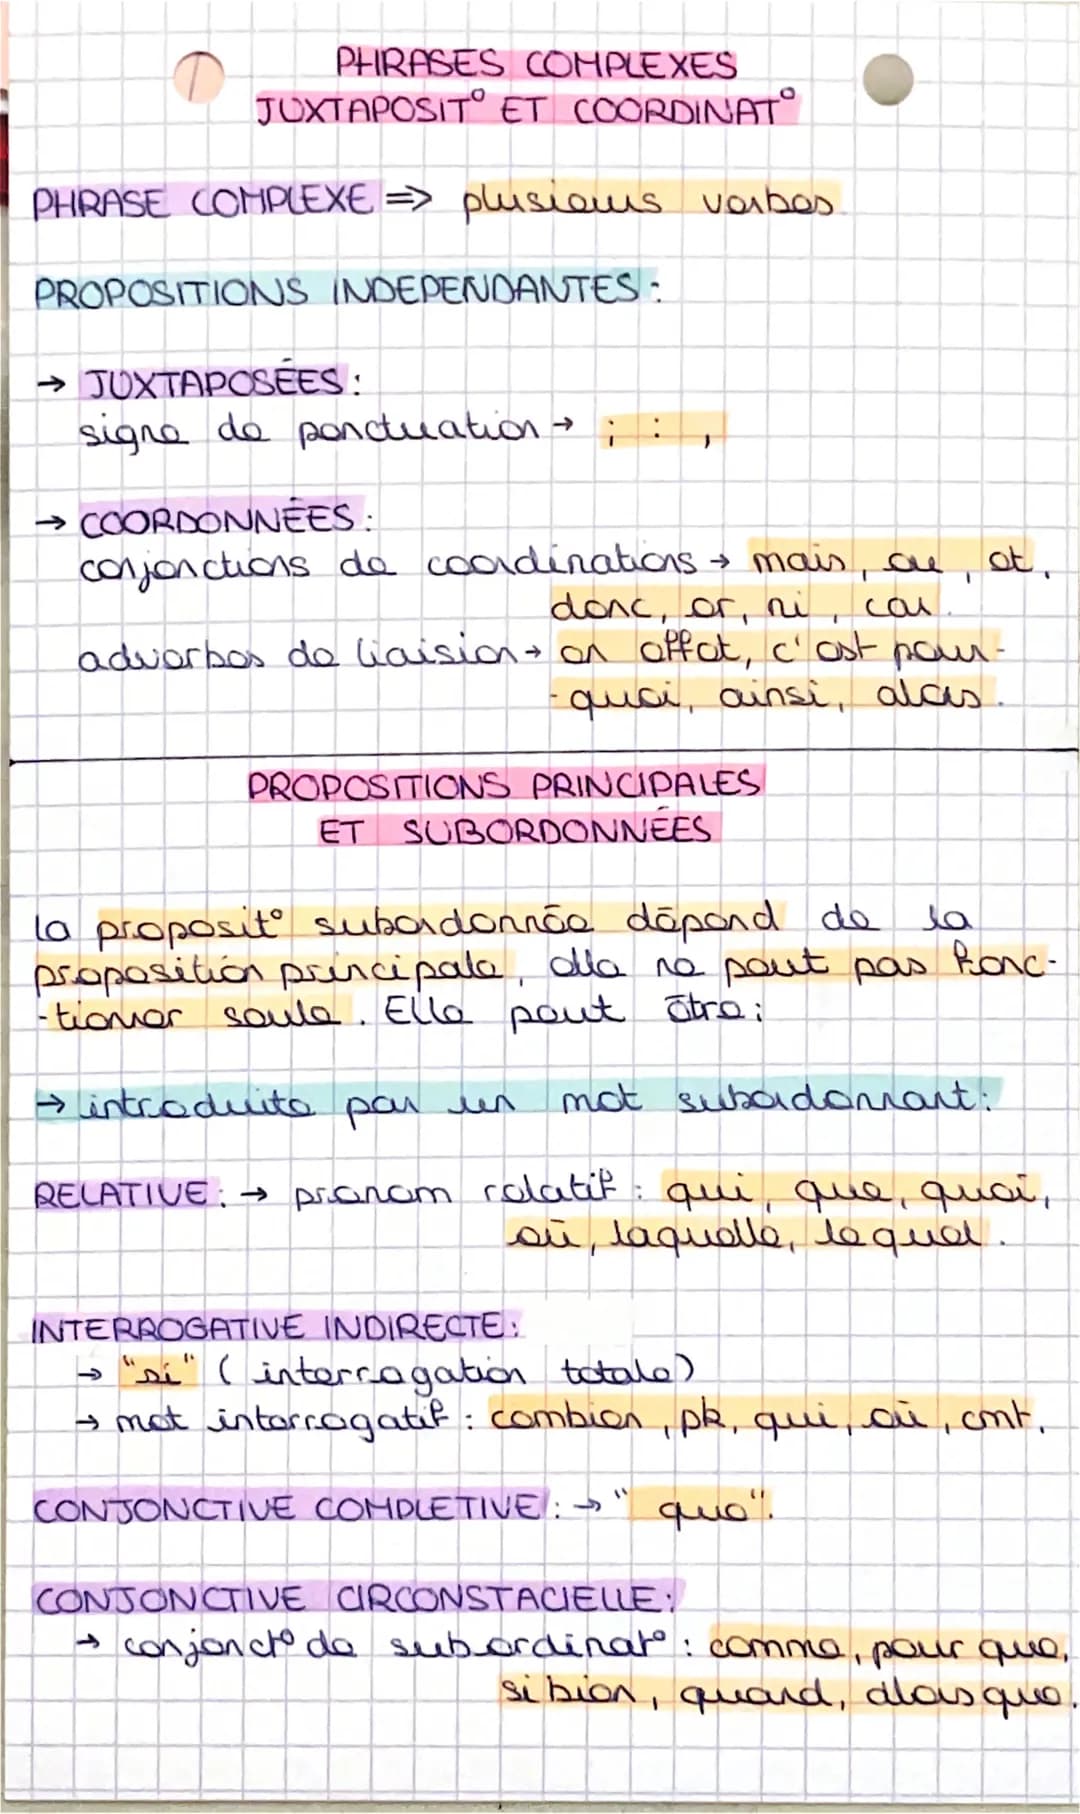 PHRASES COMPLEXES
JUXTAPOSIT° ET COORDINAT°
PHRASE COMPLEXE ⇒ plusieurs verbes
PROPOSITIONS INDEPENDANTES :
→ JUXTAPOSÉES :
signe de ponctuation → ; : ,
→ COORDONNÉES :
conjonctions de coordinations → mais, ou, et,
donc, or, ni, car.
adverbes de liaision → en effet, c'est pour-
-quoi, ainsi, alors.
PROPOSITIONS PRINCIPALES
ET SUBORDONNÉES
la proposit° subordonnée dépend de la
proposition principale, elle ne peut pas fonc-
-tionner seule. Elle peut être :
→ introduite par un mot subordonnant :
RELATIVE : → pronom relatif : qui, que, quoi,
où, laquelle, lequel.
INTERROGATIVE INDIRECTE :
→ "si" (interrogation totale)
→ mot interrogatif : combien, pk, qui, où, cmt.
CONJONCTIVE COMPLETIVE : → "que".
CONJONCTIVE CIRCONSTACIELLE :
→ conjonct° de subordinat° : comme, pour que,
si bien, quand, alors que.